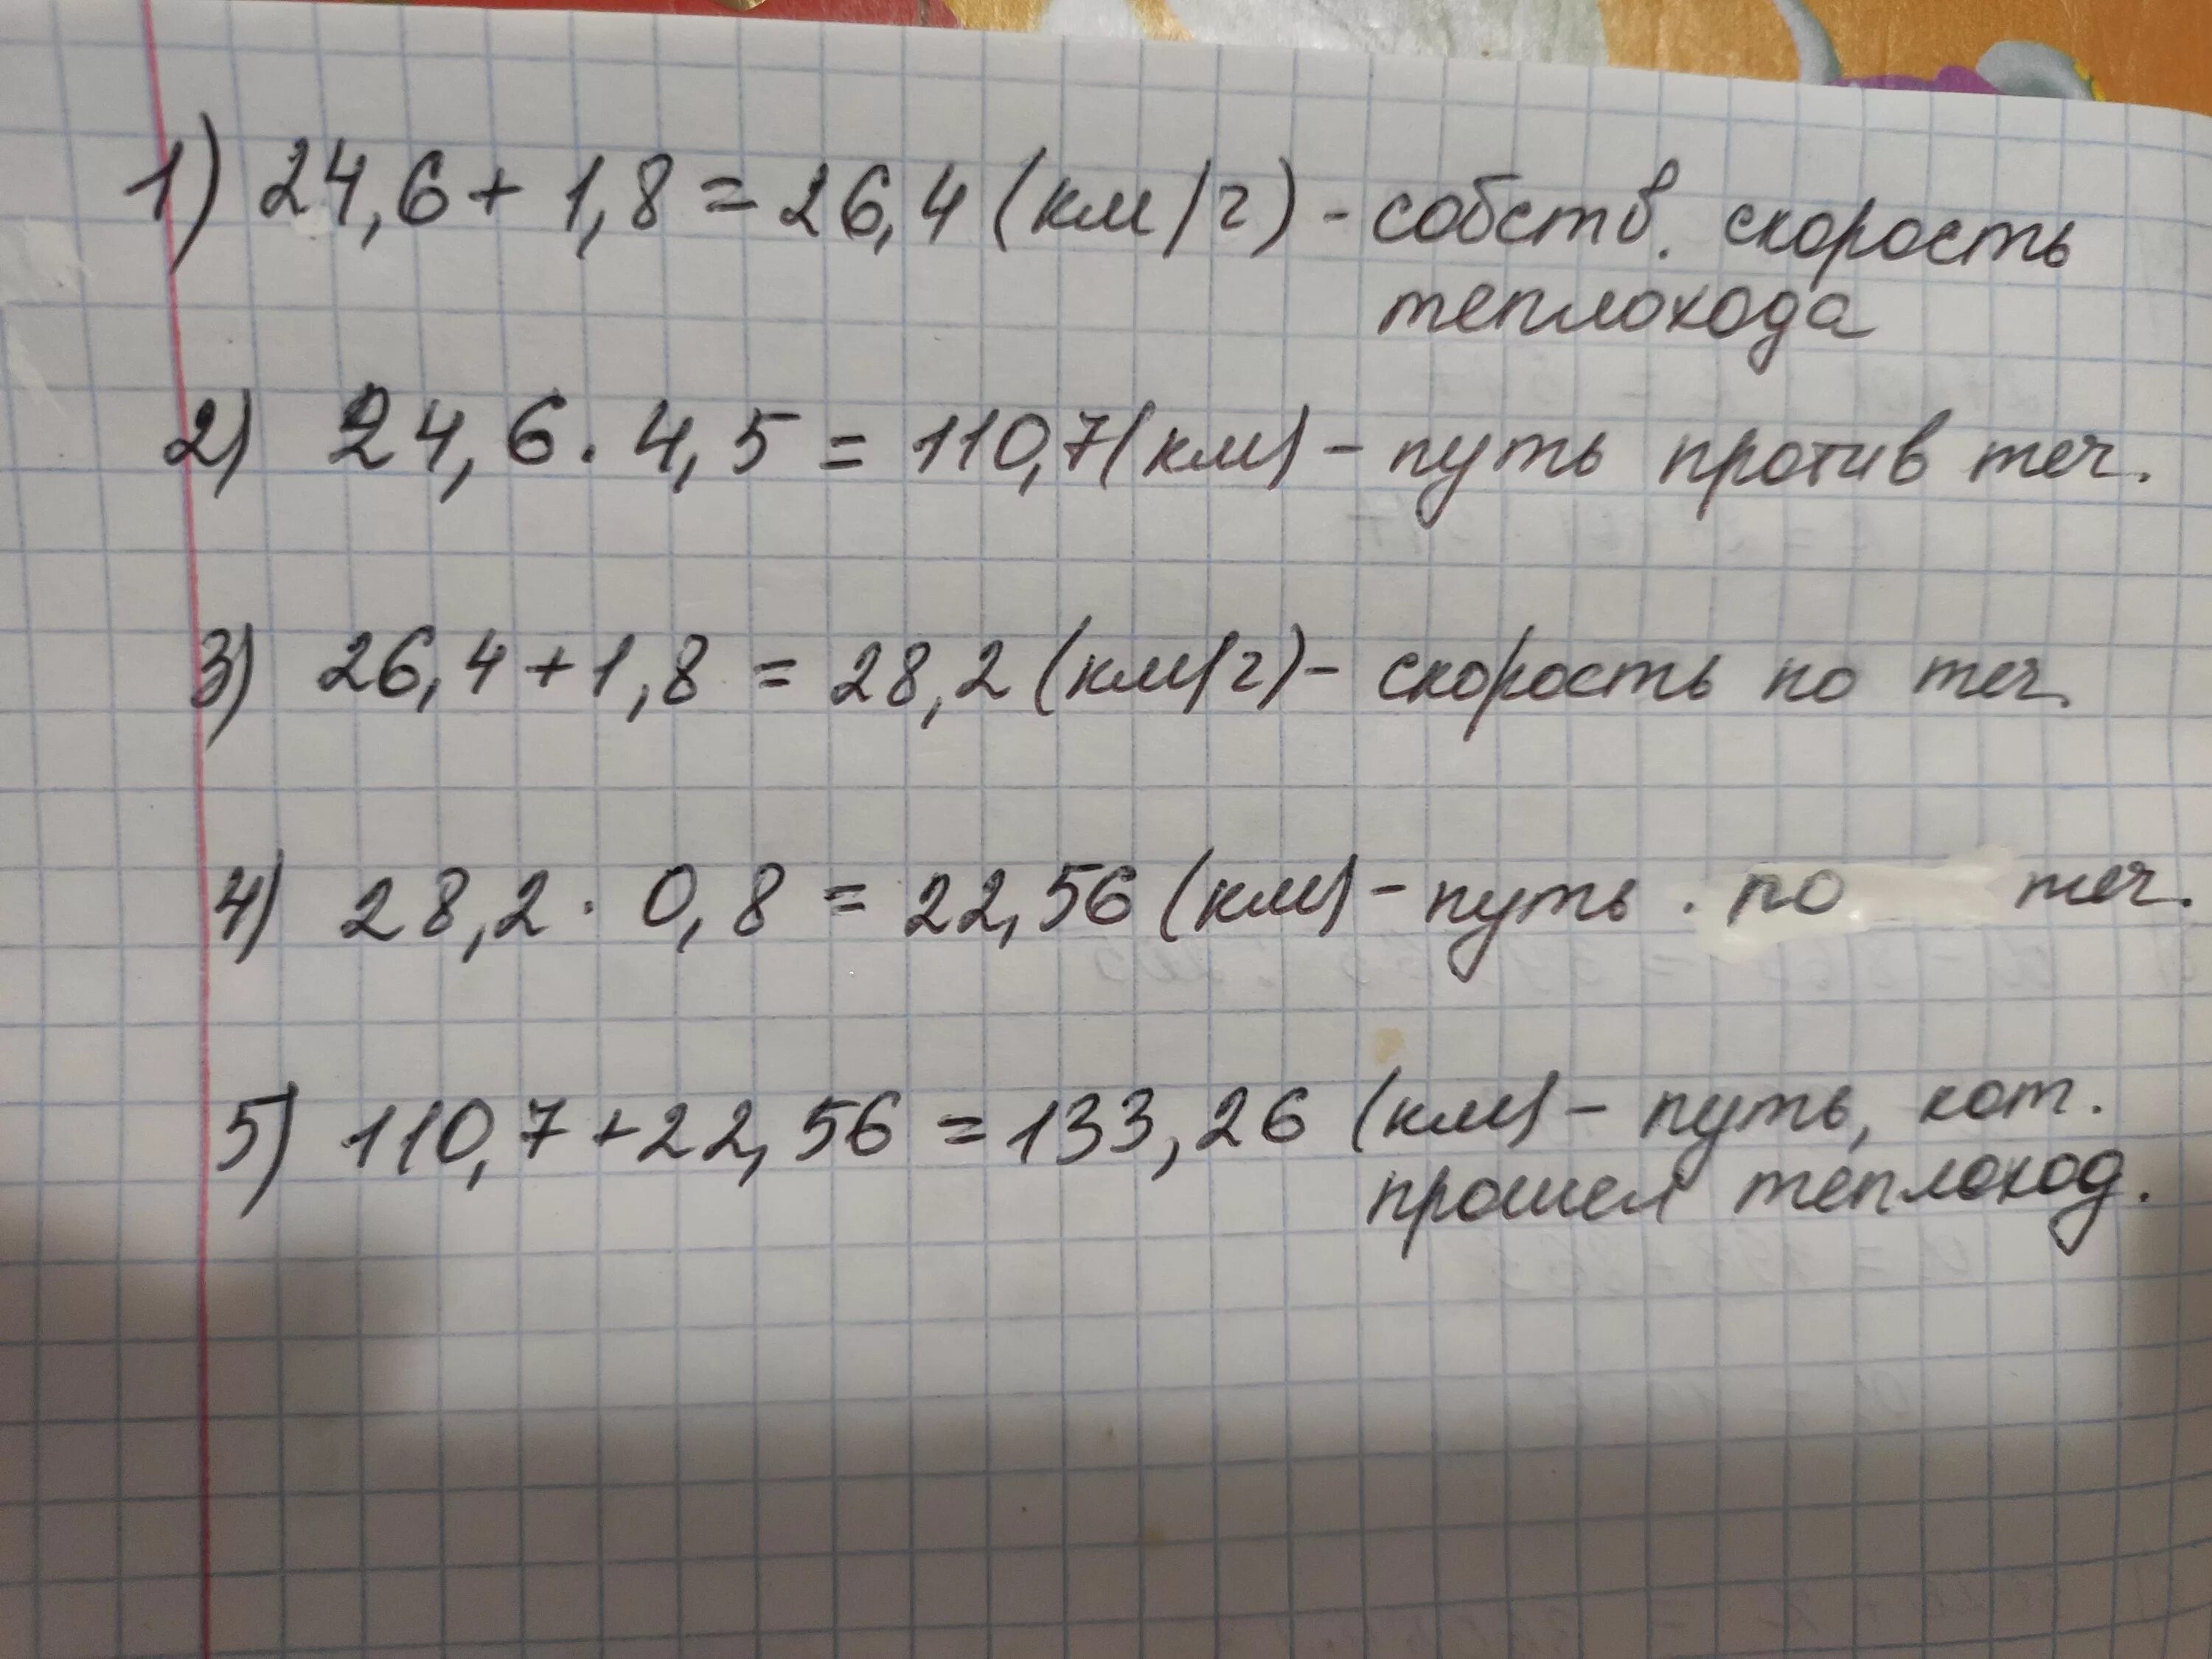 1) 24,6 + 1,8 = 26,4 (км/ч) - собств. скорость
теплохода
2) 24,6 · 4,5 = 110,7 (км) - путь против теч.
3) 26,4 + 1,8 = 28,2 (км/ч) - скорость по теч.
4) 28,2 · 0,8 = 22,56 (км) - путь . по теч.
5) 110,7 + 22,56 = 133,26 (км) - путь, кот.
прошел теплоход.